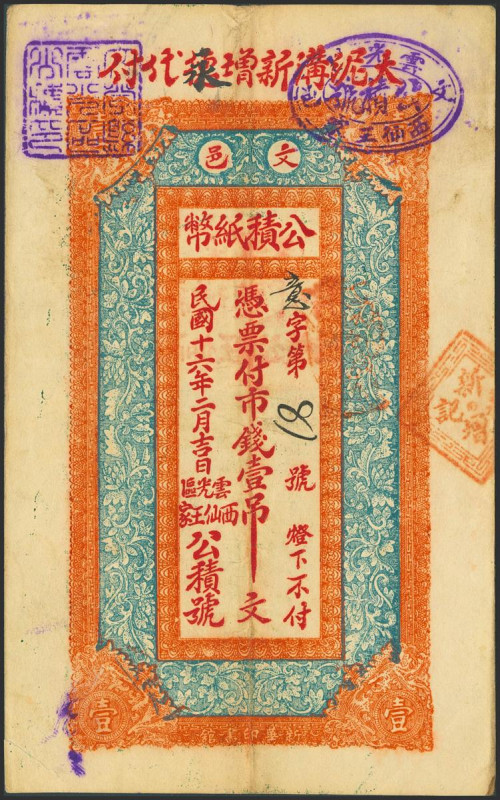 大泥溝新增蘊代付
文邑
公積紙幣
意字第 18 號 燈下不付
憑票付市錢壹吊文
民國十六年二月吉日
雲光區
西仙王家
公積號
壹
壹
新華印書館
新增記